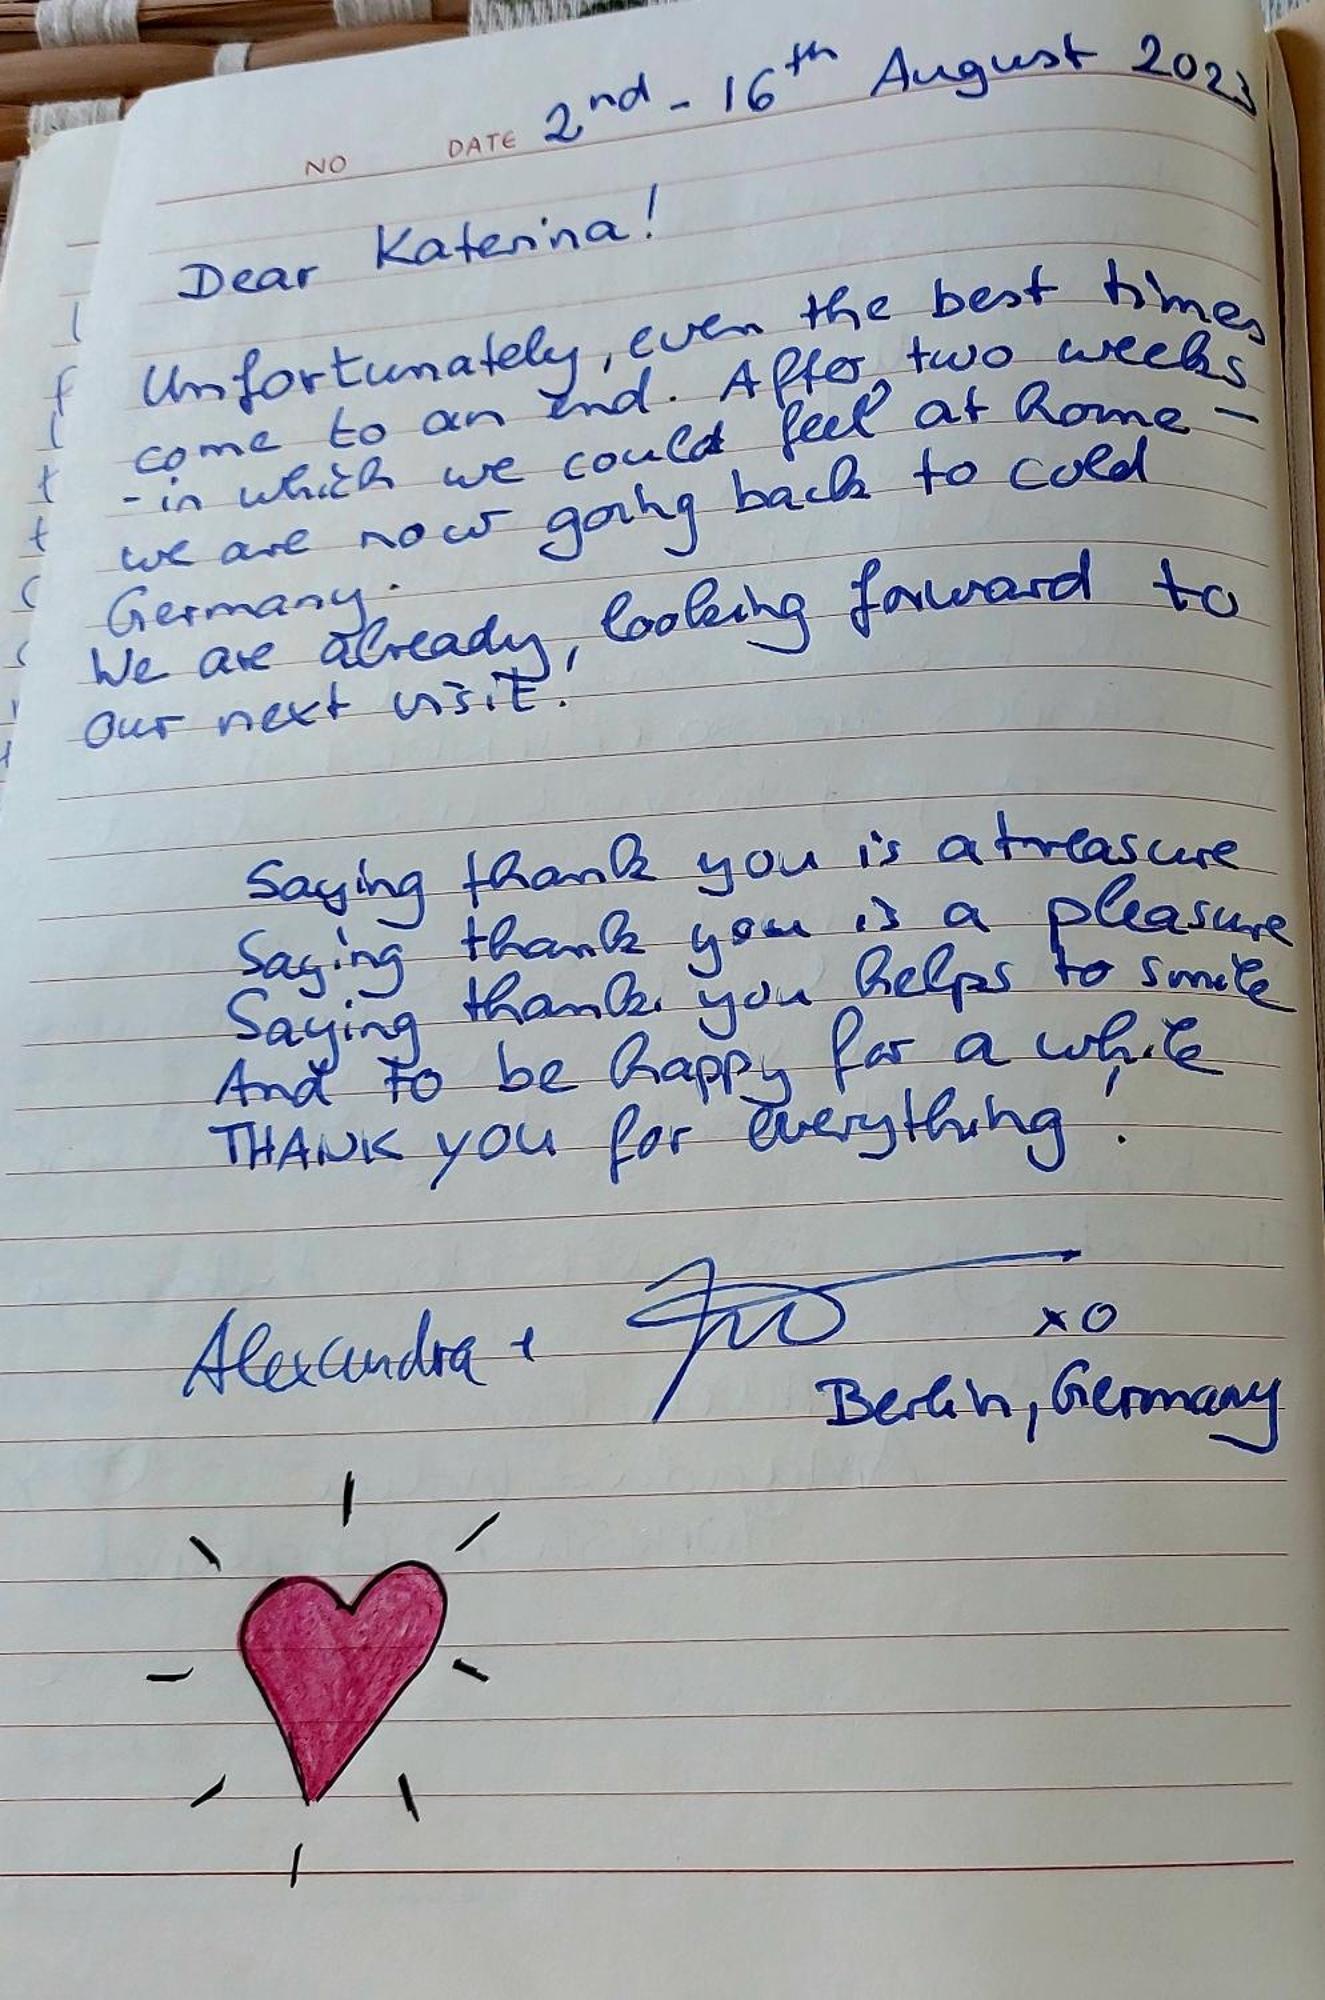 NO DATE 2nd - 16th August 2023
Dear Katerina!
Unfortunately, even the best times
come to an end. After two weeks
- in which we could feel at home -
we are now going back to cold
Germany.
We are already, looking forward to
our next visit!
Saying thank you is a treasure
Saying thank you is a pleasure
Saying thank you helps to smile
And to be happy for a while
THANK YOU for everything!
Alexandra + xo
Berlin, Germany